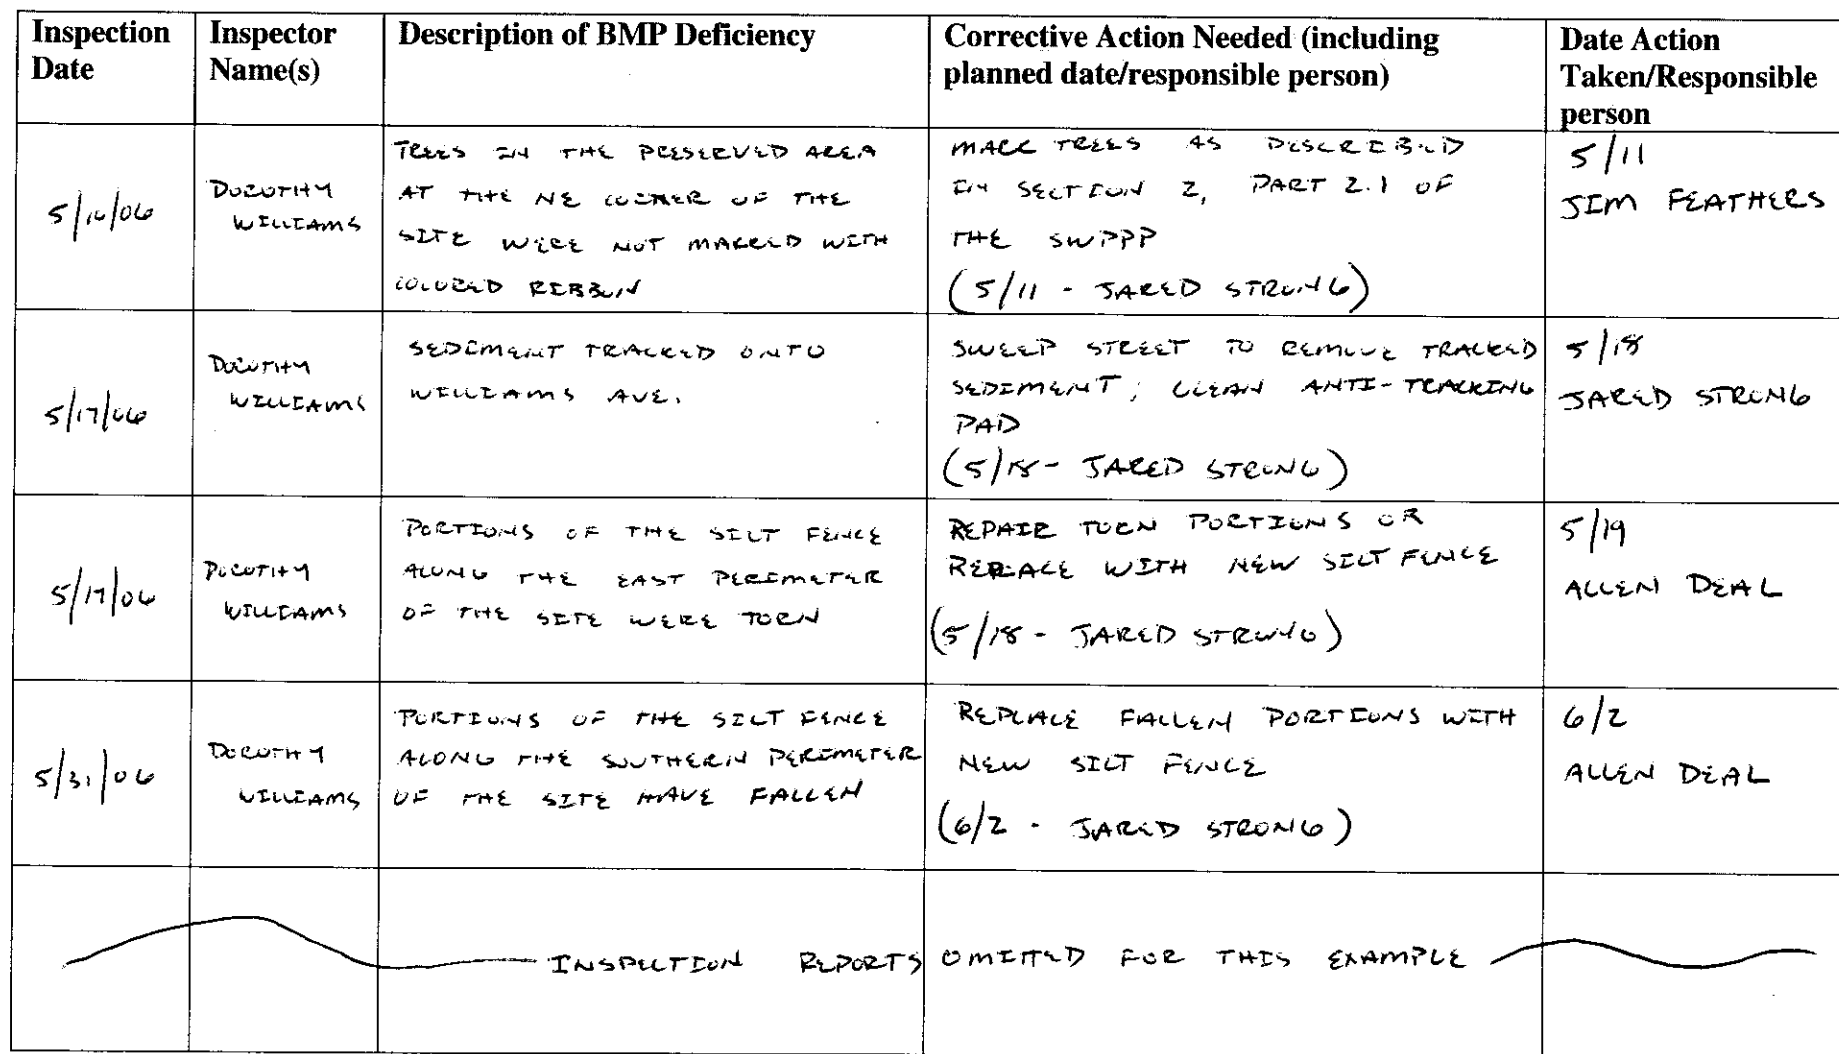 Inspection Date
Inspector Name(s)
Description of BMP Deficiency
Corrective Action Needed (including planned date/responsible person)
Date Action Taken/Responsible person
5/10/06
DOROTHY
WILLIAMS
TREES IN THE PRESERVED AREA
AT THE NE CORNER OF THE
SITE WERE NOT MARKED WITH
COLORED RIBBON
MARK TREES AS DESCRIBED
IN SECTION 2, PART 2.1 OF
THE SWPPP
(5/11 - JARED STRONG)
5/11
JIM FEATHERS
5/17/06
DOROTHY
WILLIAMS
SEDIMENT TRACKED ONTO
WILLIAMS AVE.
SWEEP STREET TO REMOVE TRACKED
SEDIMENT; CLEAN ANTI-TRACKING
PAD
(5/18 - JARED STRONG)
5/18
JARED STRONG
5/17/06
DOROTHY
WILLIAMS
PORTIONS OF THE SILT FENCE
ALONG THE EAST PERIMETER
OF THE SITE WERE TORN
REPAIR TORN PORTIONS OR
REPLACE WITH NEW SILT FENCE
(5/18 - JARED STRONG)
5/19
ALLEN DEAL
5/31/06
DOROTHY
WILLIAMS
PORTIONS OF THE SILT FENCE
ALONG THE SOUTHERN PERIMETER
OF THE SITE HAVE FALLEN
REPLACE FALLEN PORTIONS WITH
NEW SILT FENCE
(6/2 - JARED STRONG)
6/2
ALLEN DEAL
INSPECTION REPORTS OMITTED FOR THIS EXAMPLE